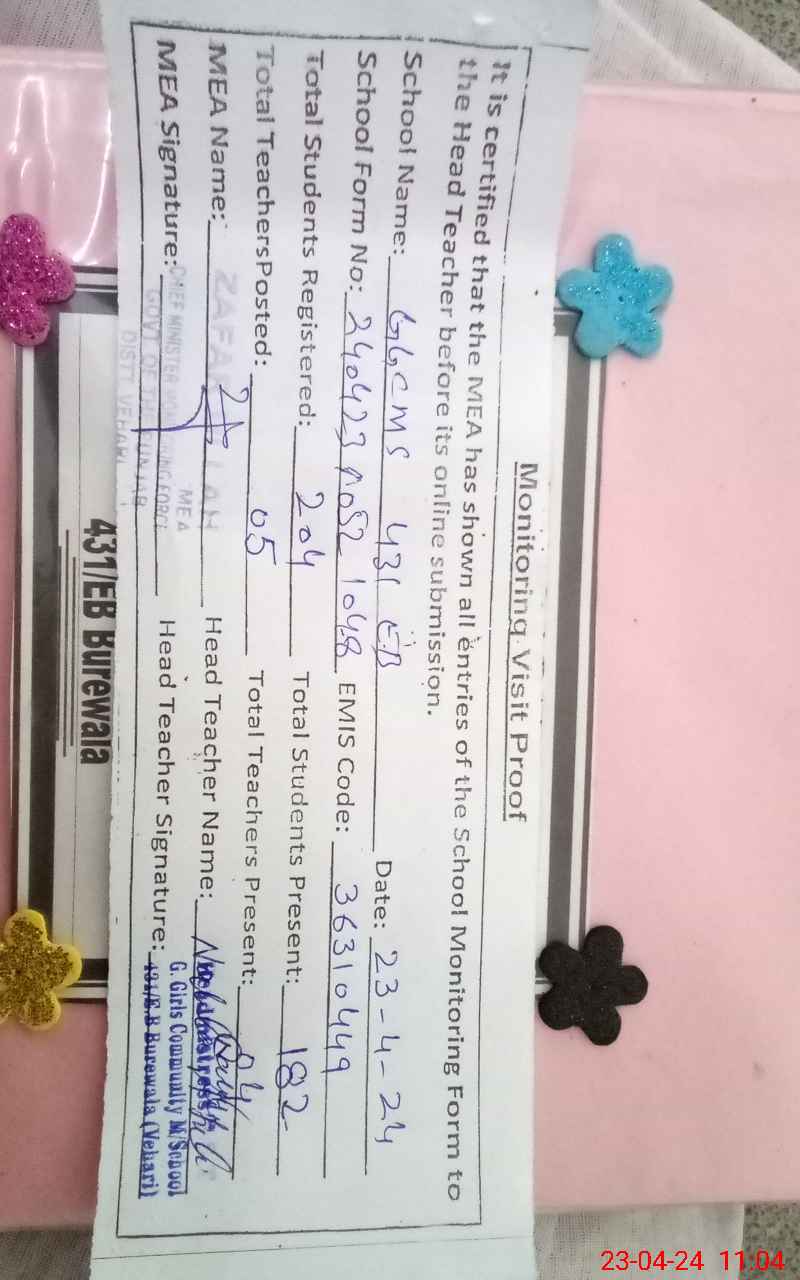 Monitoring Visit Proof
It is certified that the MEA has shown all entries of the School Monitoring Form to
the Head Teacher before its online submission.
School Name: GGCMS 431 EB Date: 23-4-24
School Form No: 240423 1048 EMIS Code: 36310449
Total Students Registered: 204 Total Students Present: 182
Total TeachersPosted: 05 Total Teachers Present: 04
MEA Name: ZAFAR Head Teacher Name:
MEA Signature: Head Teacher Signature:
MEA
CHIEF MINISTER MONITORING FORCE
GOVT OF THE PUNJAB
DISTT. VEHARI
Headmistress
G. Girls Community M/School
431/E.B Burewala (Vehari)
431/EB Burewala
23-04-24 11:04